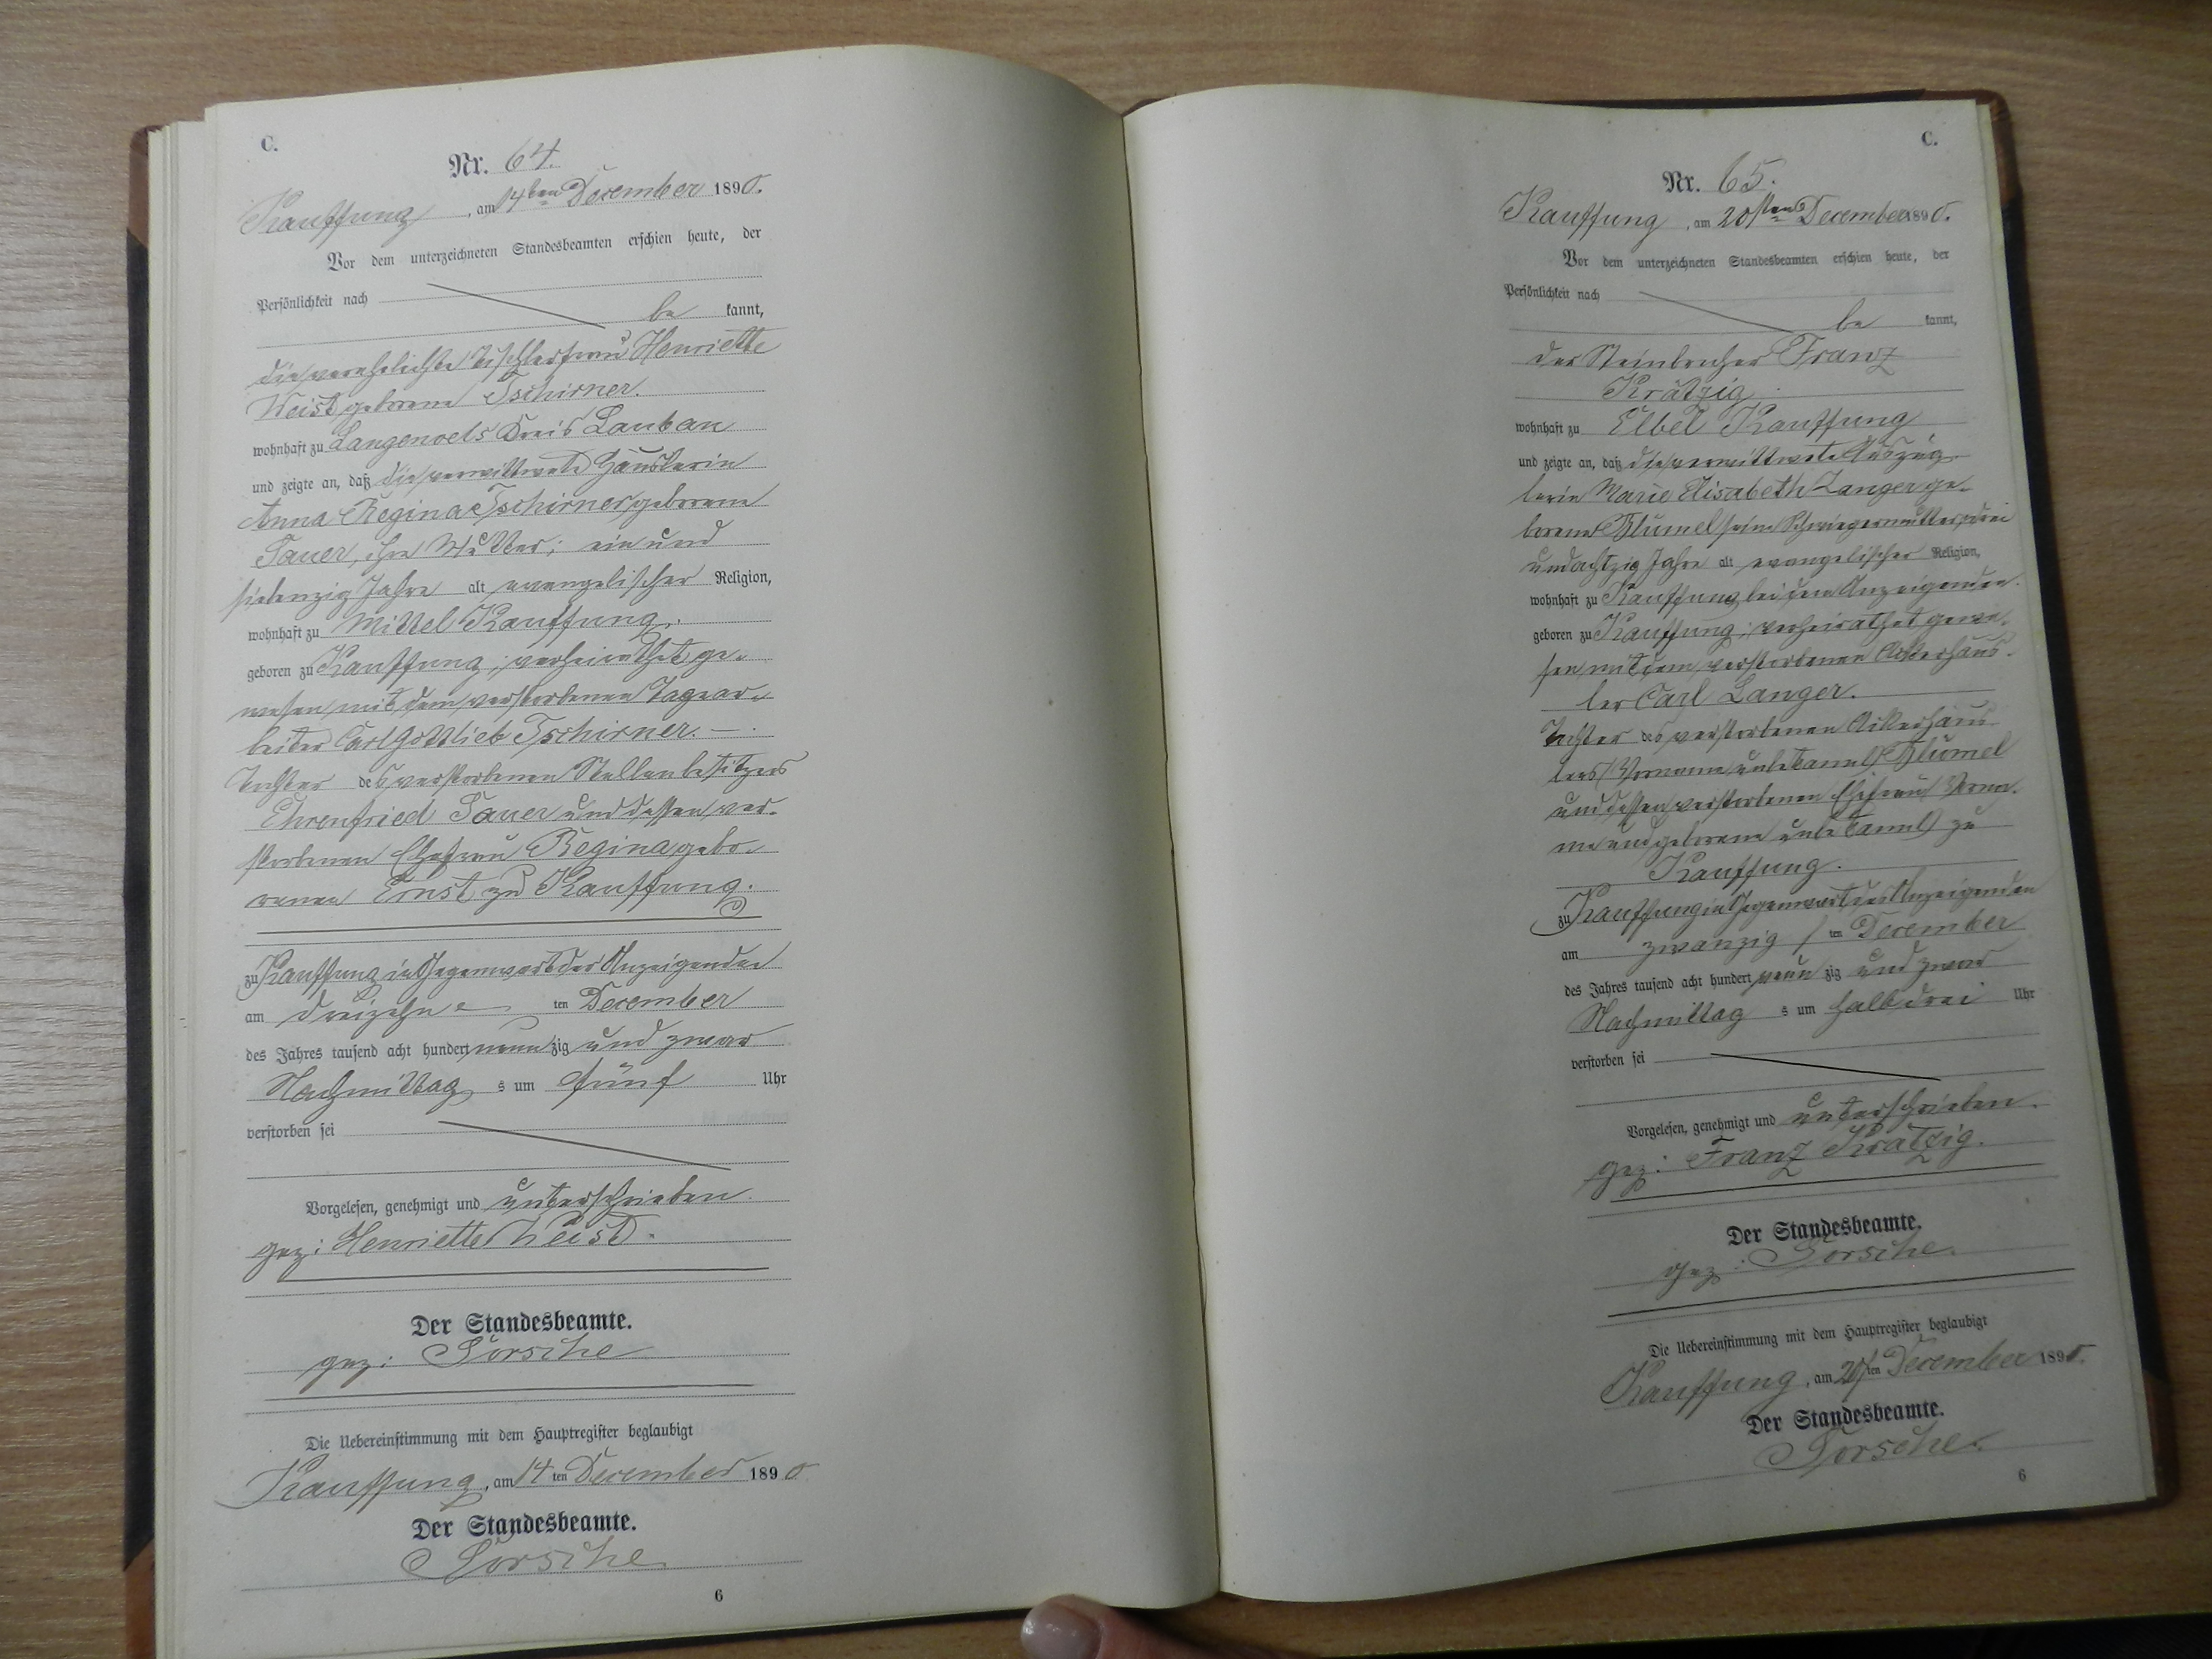 C.
Nr. 64.
Kauffung, am 14ten December 1890.
Vor dem unterzeichneten Standesbeamten erschien heute, der
Persönlichkeit nach
be kannt,
die verehelichte Tischlerfrau Henriette
Weist geborene Tschirner.
wohnhaft zu Langenoels Kreis Lauban
und zeigte an, daß die verwittwete Häuslerin
Anna Regina Tschirner geborene
Tauer, ihre Mutter; ein und
siebenzig Jahre alt evangelischer Religion,
wohnhaft zu Mittel Kauffung.
geboren zu Kauffung; verheirathet ge-
wesen mit dem verstorbenen Tagear-
beiter Carl Gottlieb Tschirner. —.
Tochter des verstorbenen Stellenbesitzers
Ehrenfried Tauer und dessen ver-
storbenen Ehefrau Regina gebo-
renen Ernst zu Kauffung.
zu Kauffung in Gegenwart der Anzeigenden
am dreizehn ten December
des Jahres tausend acht hundert neun zig und zwar
Nachmittag s um fünf Uhr
verstorben sei
Vorgelesen, genehmigt und unterschrieben.
gez: Henriette Weist.
Der Standesbeamte.
gez:
Die Uebereinstimmung mit dem Hauptregister beglaubigt
Kauffung, am 14 ten December 1890
Der Standesbeamte.
6
C.
Nr. 65.
Kauffung, am 20sten December 1890.
Vor dem unterzeichneten Standesbeamten erschien heute, der
Persönlichkeit nach
be kannt,
der Steinbrecher Franz
Krätzig
wohnhaft zu Elbel Kauffung
und zeigte an, daß die verwittwete Auszüg-
lerin Marie Elisabeth Langer ge-
borene Blümel seine Schwiegermutter, drei
und achtzig Jahre alt evangelischer Religion,
wohnhaft zu Kauffung bei dem Anzeigenden.
geboren zu Kauffung; verheirathet gewe-
sen mit dem verstorbenen Ackerhäus-
ler Carl Langer.
Tochter des verstorbenen Ackerhäus-
lers (Vorname unbekannt) Blümel
und dessen verstorbenen Ehefrau (Vorna-
me und geborene unbekannt) zu
Kauffung.
zu Kauffung in Gegenwart des Anzeigenden
am zwanzig s ten December
des Jahres tausend acht hundert neun zig und zwar
Nachmittag s um halb drei Uhr
verstorben sei
Vorgelesen, genehmigt und unterschrieben.
gez: Franz Krätzig.
Der Standesbeamte.
gez:
Die Uebereinstimmung mit dem Hauptregister beglaubigt
Kauffung, am 20s ten December 1890.
Der Standesbeamte.
6